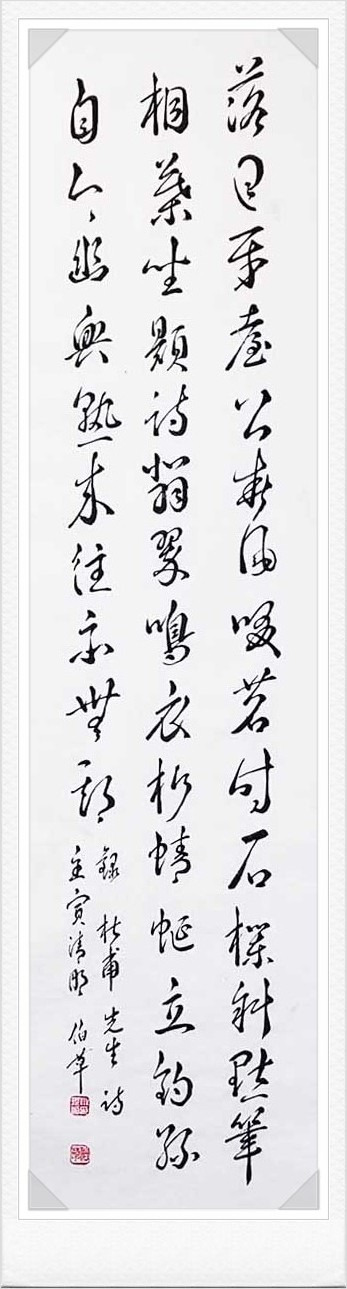 落日平臺上春風啜茗時石欄斜點筆
桐葉坐題詩翡翠鳴衣桁蜻蜓立釣絲
自今幽興熟來往亦無期
錄杜甫先生詩
壬寅清明 伯